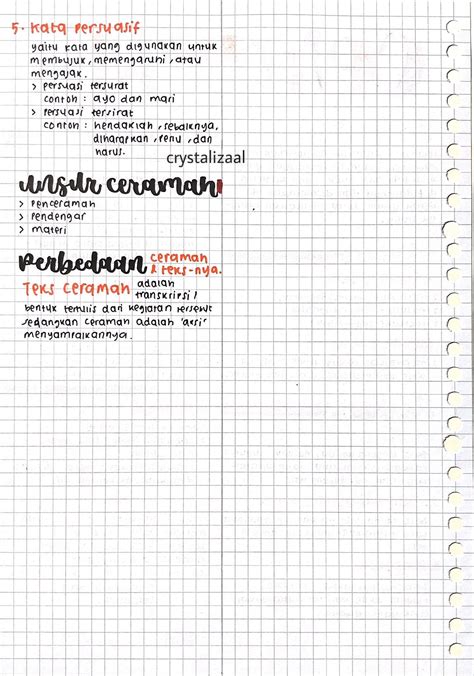 5. Kata Persuasif
yaitu kata yang digunakan untuk
membujuk, memengaruhi, atau
mengajak.
> persuasi tersurat
contoh : ayo dan mari
> persuasi tersirat
contoh : hendaklah, sebaiknya,
diharapkan, perlu, dan
harus.
crystalizaal
unsur ceramah
> penceramah
> pendengar
> materi
perbedaan ceramah
& teks-nya.
Teks ceramah adalah
transkripsi/
bentuk tertulis dari kegiatan tersebut
sedangkan ceramah adalah 'aksi'
menyampaikannya.